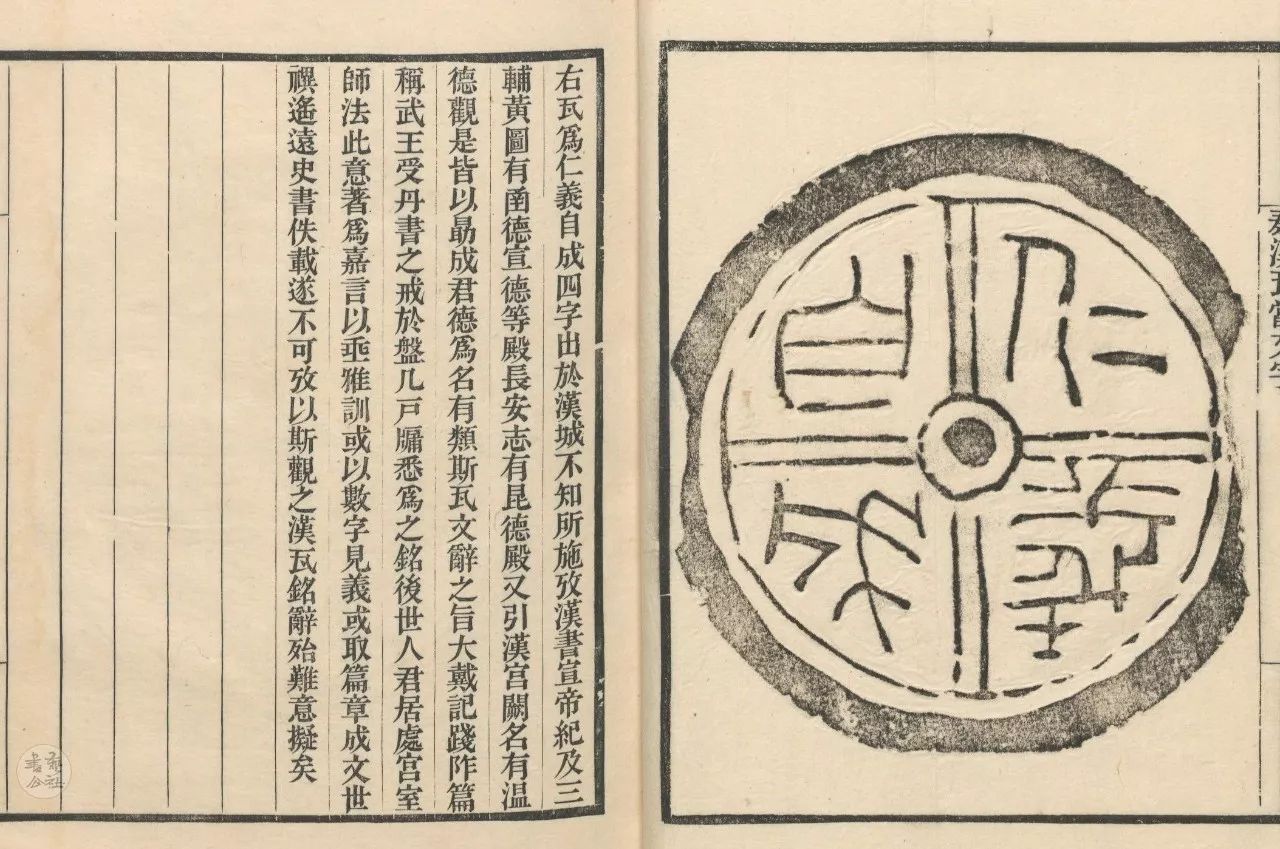 仁義
自成
右瓦爲仁義自成四字出於漢城不知所施攷漢書宣帝紀及三
輔黃圖有函德宣德等殿長安志有昆德殿又引漢宮闕名有溫
德觀是皆以勗成君德爲名有類斯瓦文辭之旨大戴記踐阼篇
稱武王受丹書之戒於盤几戶牖悉爲之銘後世人君居處宮室
師法此意著爲嘉言以埀雅訓或以數字見義或取篇章成文世
禩遙遠史書佚載遂不可攷以斯觀之漢瓦銘辭殆難意擬矣